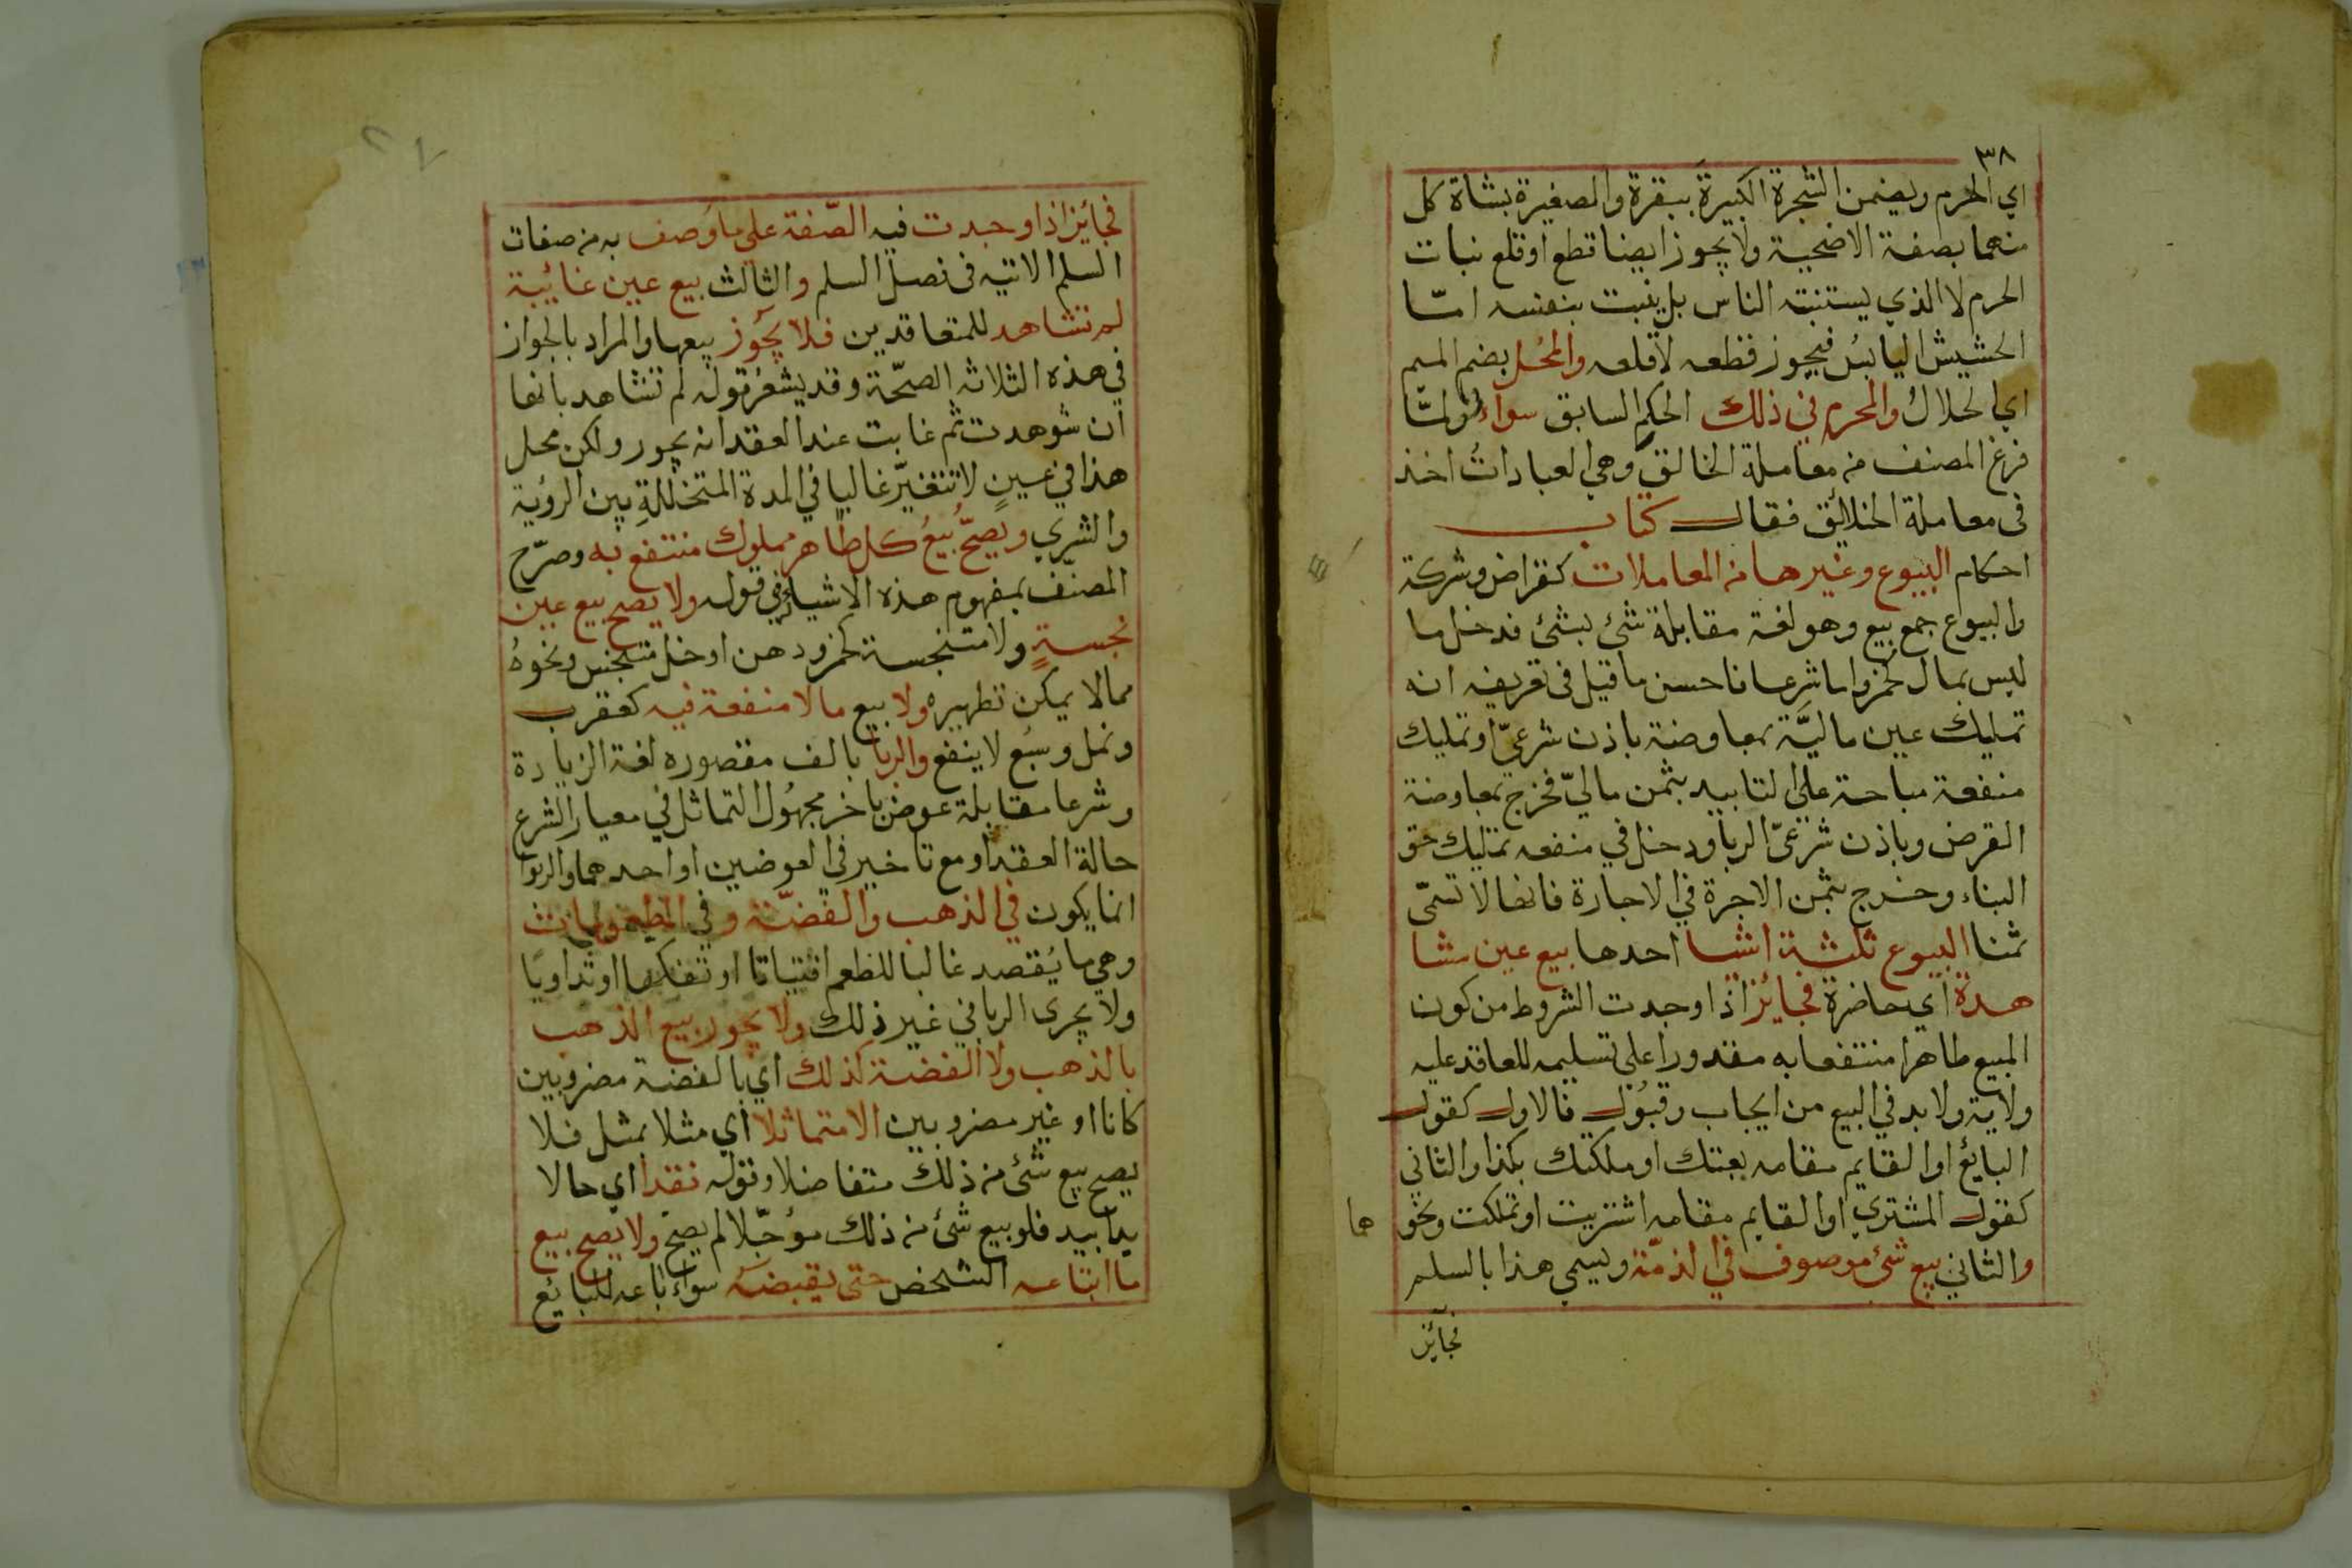 ٣٨
اي الحرم ويضمن الشجرة الكبيرة ببقرة والصغيرة بشاة كل
منهما بصفة الاضحية ولا يجوز ايضا قطع او قلع نبات
الحرم لا الذي يستنبته الناس بل ينبت بنفسه امّا
الحشيش اليابسُ فيجوز قطعه لا قلعه والمُحل بضم الميم
اي الحلالُ والمحرم في ذلك الحكم السابق سواءٌ ولمّا
فرغ المصنف من معاملة الخالق وهي العباداتُ اخذ
فى معاملة الخلائق فقال كتاب
احكام البيوع وغيرها من المعاملات كقراض وشركة
والبيوع جمع بيع وهو لغة مقابلة شئ بشئ فدخل ما
ليس بمال كخمر واما شرعا فاحسن ما قيل فى تعريفه انه
تمليك عين ماليَّة بمعاوضة باذن شرعيّ او تمليك
منفعة مباحة على التابيد بثمن ماليّ فخرج بمعاوضة
القرض وباذن شرعىّ الربا ودخل في منفعه تمليك حق
البناء وخرج بثمن الاجرة في الاجارة فانها لا تسمّى
ثمنا البيوع ثلثة اشيا احدها بيع عين مشا
هدة اي حاضرة فجايز اذا وجدت الشروط من كون
المبيع طاهرا منتفعا به مقدورا على تسليمه للعاقد عليه
ولاية ولا بد في البيع من ايجاب وقبُول فالاول كقول
البايع او القايم مقامه بعتك او ملكتك بكذا والثاني
كقول المشتري او القايم مقامه اشتريت او تملكت ونحو
هما
والثاني بيع شئ موصوف في الذمّة ويسمي هذا بالسلم
فجائز
فجائز اذا وجدت فيه الصّفة علي ما وُصف به من صفات
السلم الاتيه فى فصل السلم والثالث بيع عين غائبة
لم تشاهد للمتعاقدين فلا يجُوز بيعها والمراد بالجواز
في هذه الثلاثه الصحّة وقد يشعرُ قوله لم تشاهد بانها
ان شوهدت ثم غابت عند العقد انه يجوز ولكن محل
هذا في عينٍ لا تتغيّر غالبا في المدة المتخللةِ بين الرؤية
والشري ويصحّ بيعُ كل طاهر مملوك منتفع به وصرّح
المصنّف بمفهوم هذه الاشياء في قوله ولا يصح بيع عين
نجسةٍ ولا متنجسة كخمر ودهن او خل متنجس ونحوهُ
مما لا يمكن تطهيره ولا بيع ما لا منفعة فيه كعقرب
ونمل وسبُع لا ينفع والربا بالف مقصوره لغة الزيادة
وشرعا مقابلة عوض باخر مجهُول التماثل في معيار الشرع
حالة العقد او مع تاخير في العوضين او احدهما والربوا
انما يكون في الذهب والفضّة وفي المطعومات
وهي ما يُقصد غالبا للطعم اقتياتا او تفكها او تداويًا
ولا يجرى الربا في غير ذلك ولا يجوز بيع الذهب
بالذهب ولا الفضة كذلك اي بالفضة مضروبين
كانا او غير مضروبين الا متماثلا اي مثلا بمثل فلا
يصح بيع شئ من ذلك متفاضلا وقوله نقدا اي حالا
يدا بيد فلو بيع شئ من ذلك مؤجّلا لم يصح ولا يصح بيع
ما ابتاعه الشخص حتى يقبضه سواء باعه للبايع